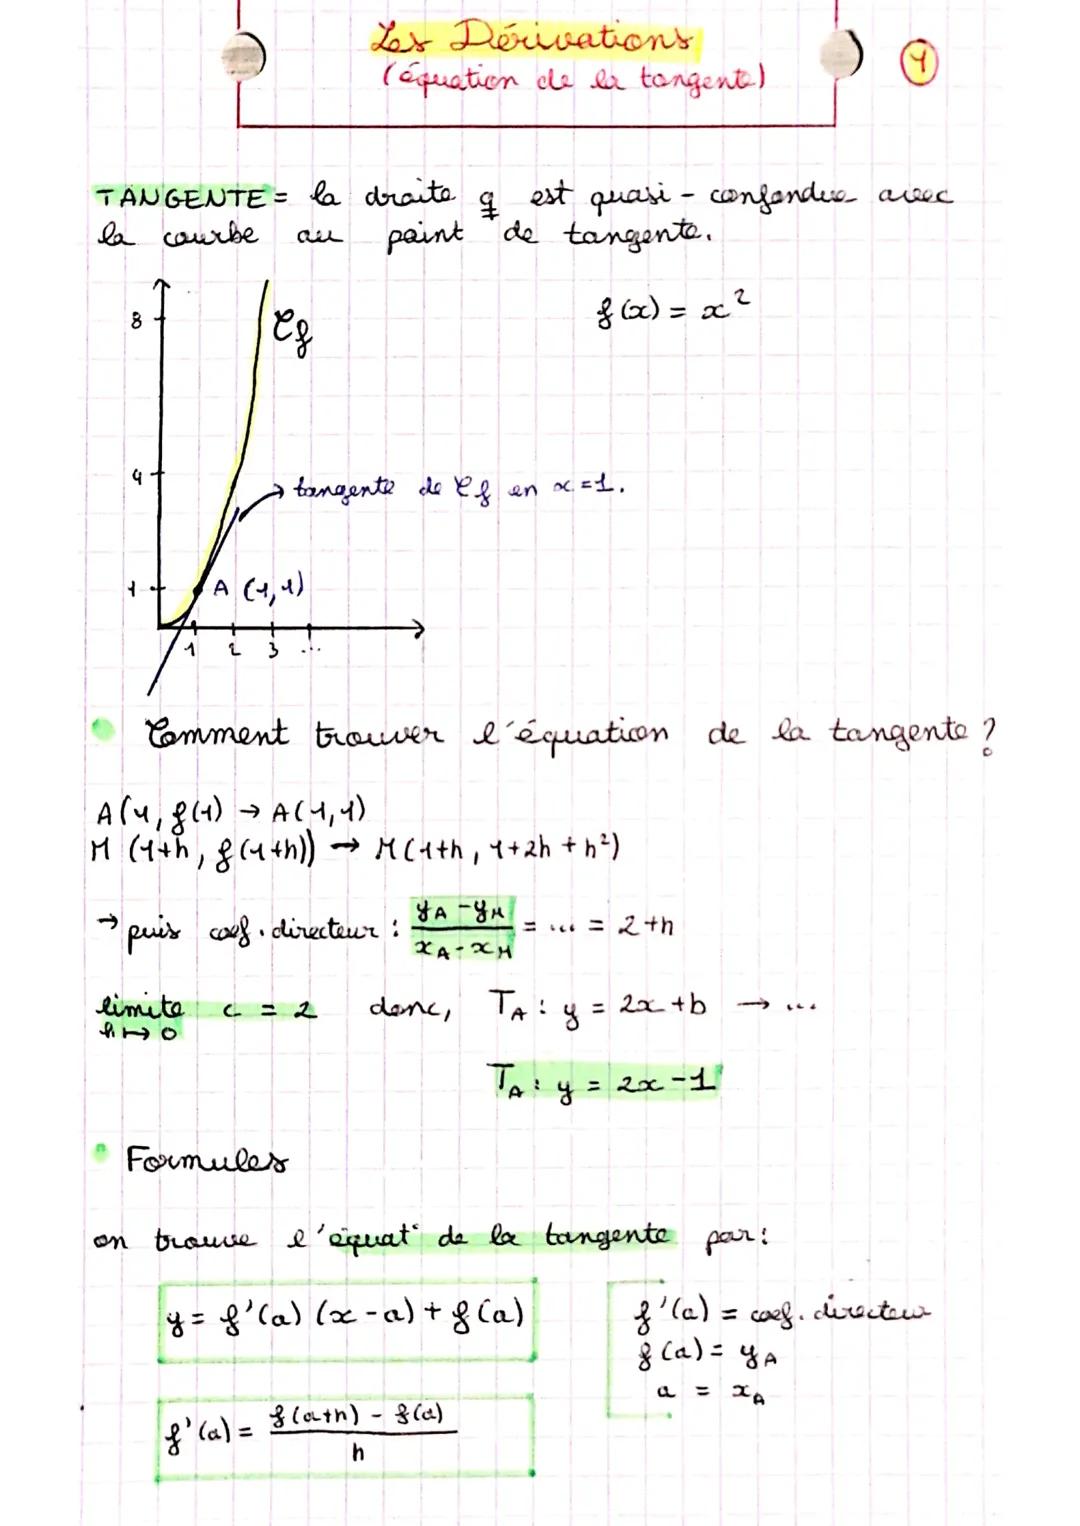 Les Dérivations
(équation de la tangente)
1
TANGENTE = la droite q est quasi-confondue avec
la courbe au point de tangente.
f(x) = x²
8
Cf
4
→ tangente de Cf en x=1.
1
A (1,1)
1 2 3 ...
• Comment trouver l'équation de la tangente ?
A(1, f(1) → A(1,1)
M (1+h, f(1+h)) → M(1+h, 1+2h+h²)
→ puis coef. directeur : (yA - yM)/(xA - xM) = ... = 2+h
limite c = 2 donc, TA : y = 2x+b → ...
h ↦ 0
TA : y = 2x-1
• Formules
on trouve l'équat° de la tangente par :
y = f'(a) (x-a) + f(a)
f'(a) = coef. directeur
f(a) = yA
a = xA
f'(a) = (f(a+h) - f(a))/h